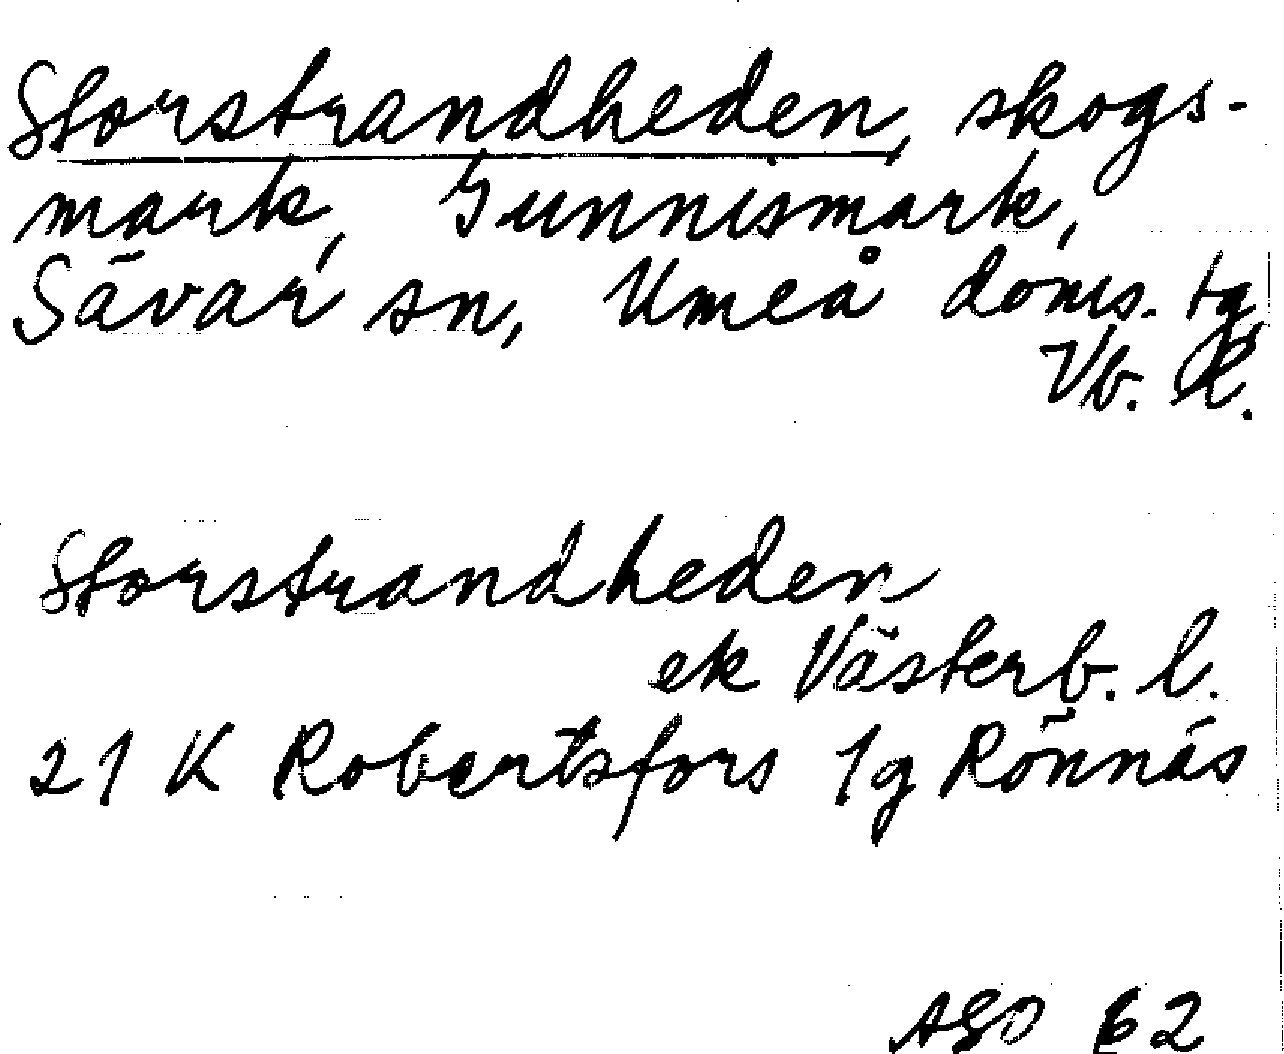 Storstrandheden, skogs-
mark, Gunnismark,
Sävar sn, Umeå doms. tg,
Vb. l.
Storstrandheden
ek Västerb. l.
21 K Robertsfors 1g Rönnäs
ASO 62